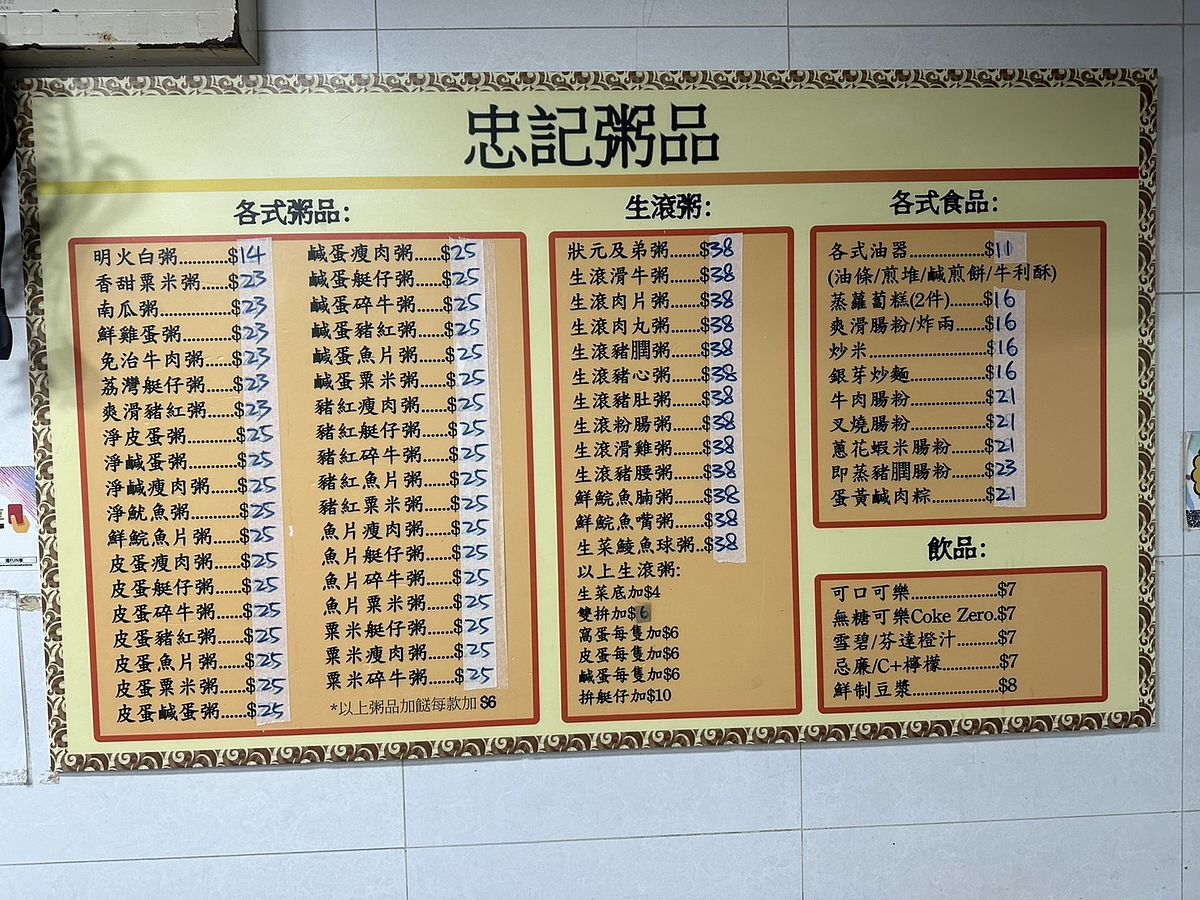 忠記粥品
各式粥品:
明火白粥.........$14
香甜粟米粥.....$23
南瓜粥.............$23
鮮雞蛋粥.........$23
免治牛肉粥.....$23
荔灣艇仔粥.....$23
爽滑豬紅粥.....$23
淨皮蛋粥.........$25
淨鹹蛋粥.........$25
淨鹹瘦肉粥.....$25
淨魷魚粥.........$25
鮮鯇魚片粥.....$25
皮蛋瘦肉粥.....$25
皮蛋艇仔粥.....$25
皮蛋碎牛粥.....$25
皮蛋豬紅粥.....$25
皮蛋魚片粥.....$25
皮蛋粟米粥.....$25
皮蛋鹹蛋粥.....$25
鹹蛋瘦肉粥.....$25
鹹蛋艇仔粥.....$25
鹹蛋碎牛粥.....$25
鹹蛋豬紅粥.....$25
鹹蛋魚片粥.....$25
鹹蛋粟米粥.....$25
豬紅瘦肉粥.....$25
豬紅艇仔粥.....$25
豬紅碎牛粥.....$25
豬紅魚片粥.....$25
豬紅粟米粥.....$25
魚片瘦肉粥.....$25
魚片艇仔粥.....$25
魚片碎牛粥.....$25
魚片粟米粥.....$25
粟米艇仔粥.....$25
粟米瘦肉粥.....$25
粟米碎牛粥.....$25
*以上粥品加餸每款加 $6
生滾粥:
狀元及弟粥......$38
生滾滑牛粥......$38
生滾肉片粥......$38
生滾肉丸粥......$38
生滾豬膶粥......$38
生滾豬心粥......$38
生滾豬肚粥......$38
生滾粉腸粥......$38
生滾滑雞粥......$38
生滾豬腰粥......$38
鮮鯇魚腩粥......$38
鮮鯇魚嘴粥......$38
生菜鯪魚球粥..$38
以上生滾粥:
生菜底加$4
雙拚加$6
窩蛋每隻加$6
皮蛋每隻加$6
鹹蛋每隻加$6
拚艇仔加$10
各式食品:
各式油器...............$11
(油條/煎堆/鹹煎餅/牛利酥)
蒸蘿蔔糕(2件).......$16
爽滑腸粉/炸兩......$16
炒米.......................$16
銀芽炒麵...............$16
牛肉腸粉...............$21
叉燒腸粉...............$21
蔥花蝦米腸粉.......$21
即蒸豬膶腸粉.......$23
蛋黃鹹肉粽...........$21
飲品:
可口可樂.................$7
無糖可樂Coke Zero.$7
雪碧/芬達橙汁........$7
忌廉/C+檸檬...........$7
鮮制豆漿.................$8